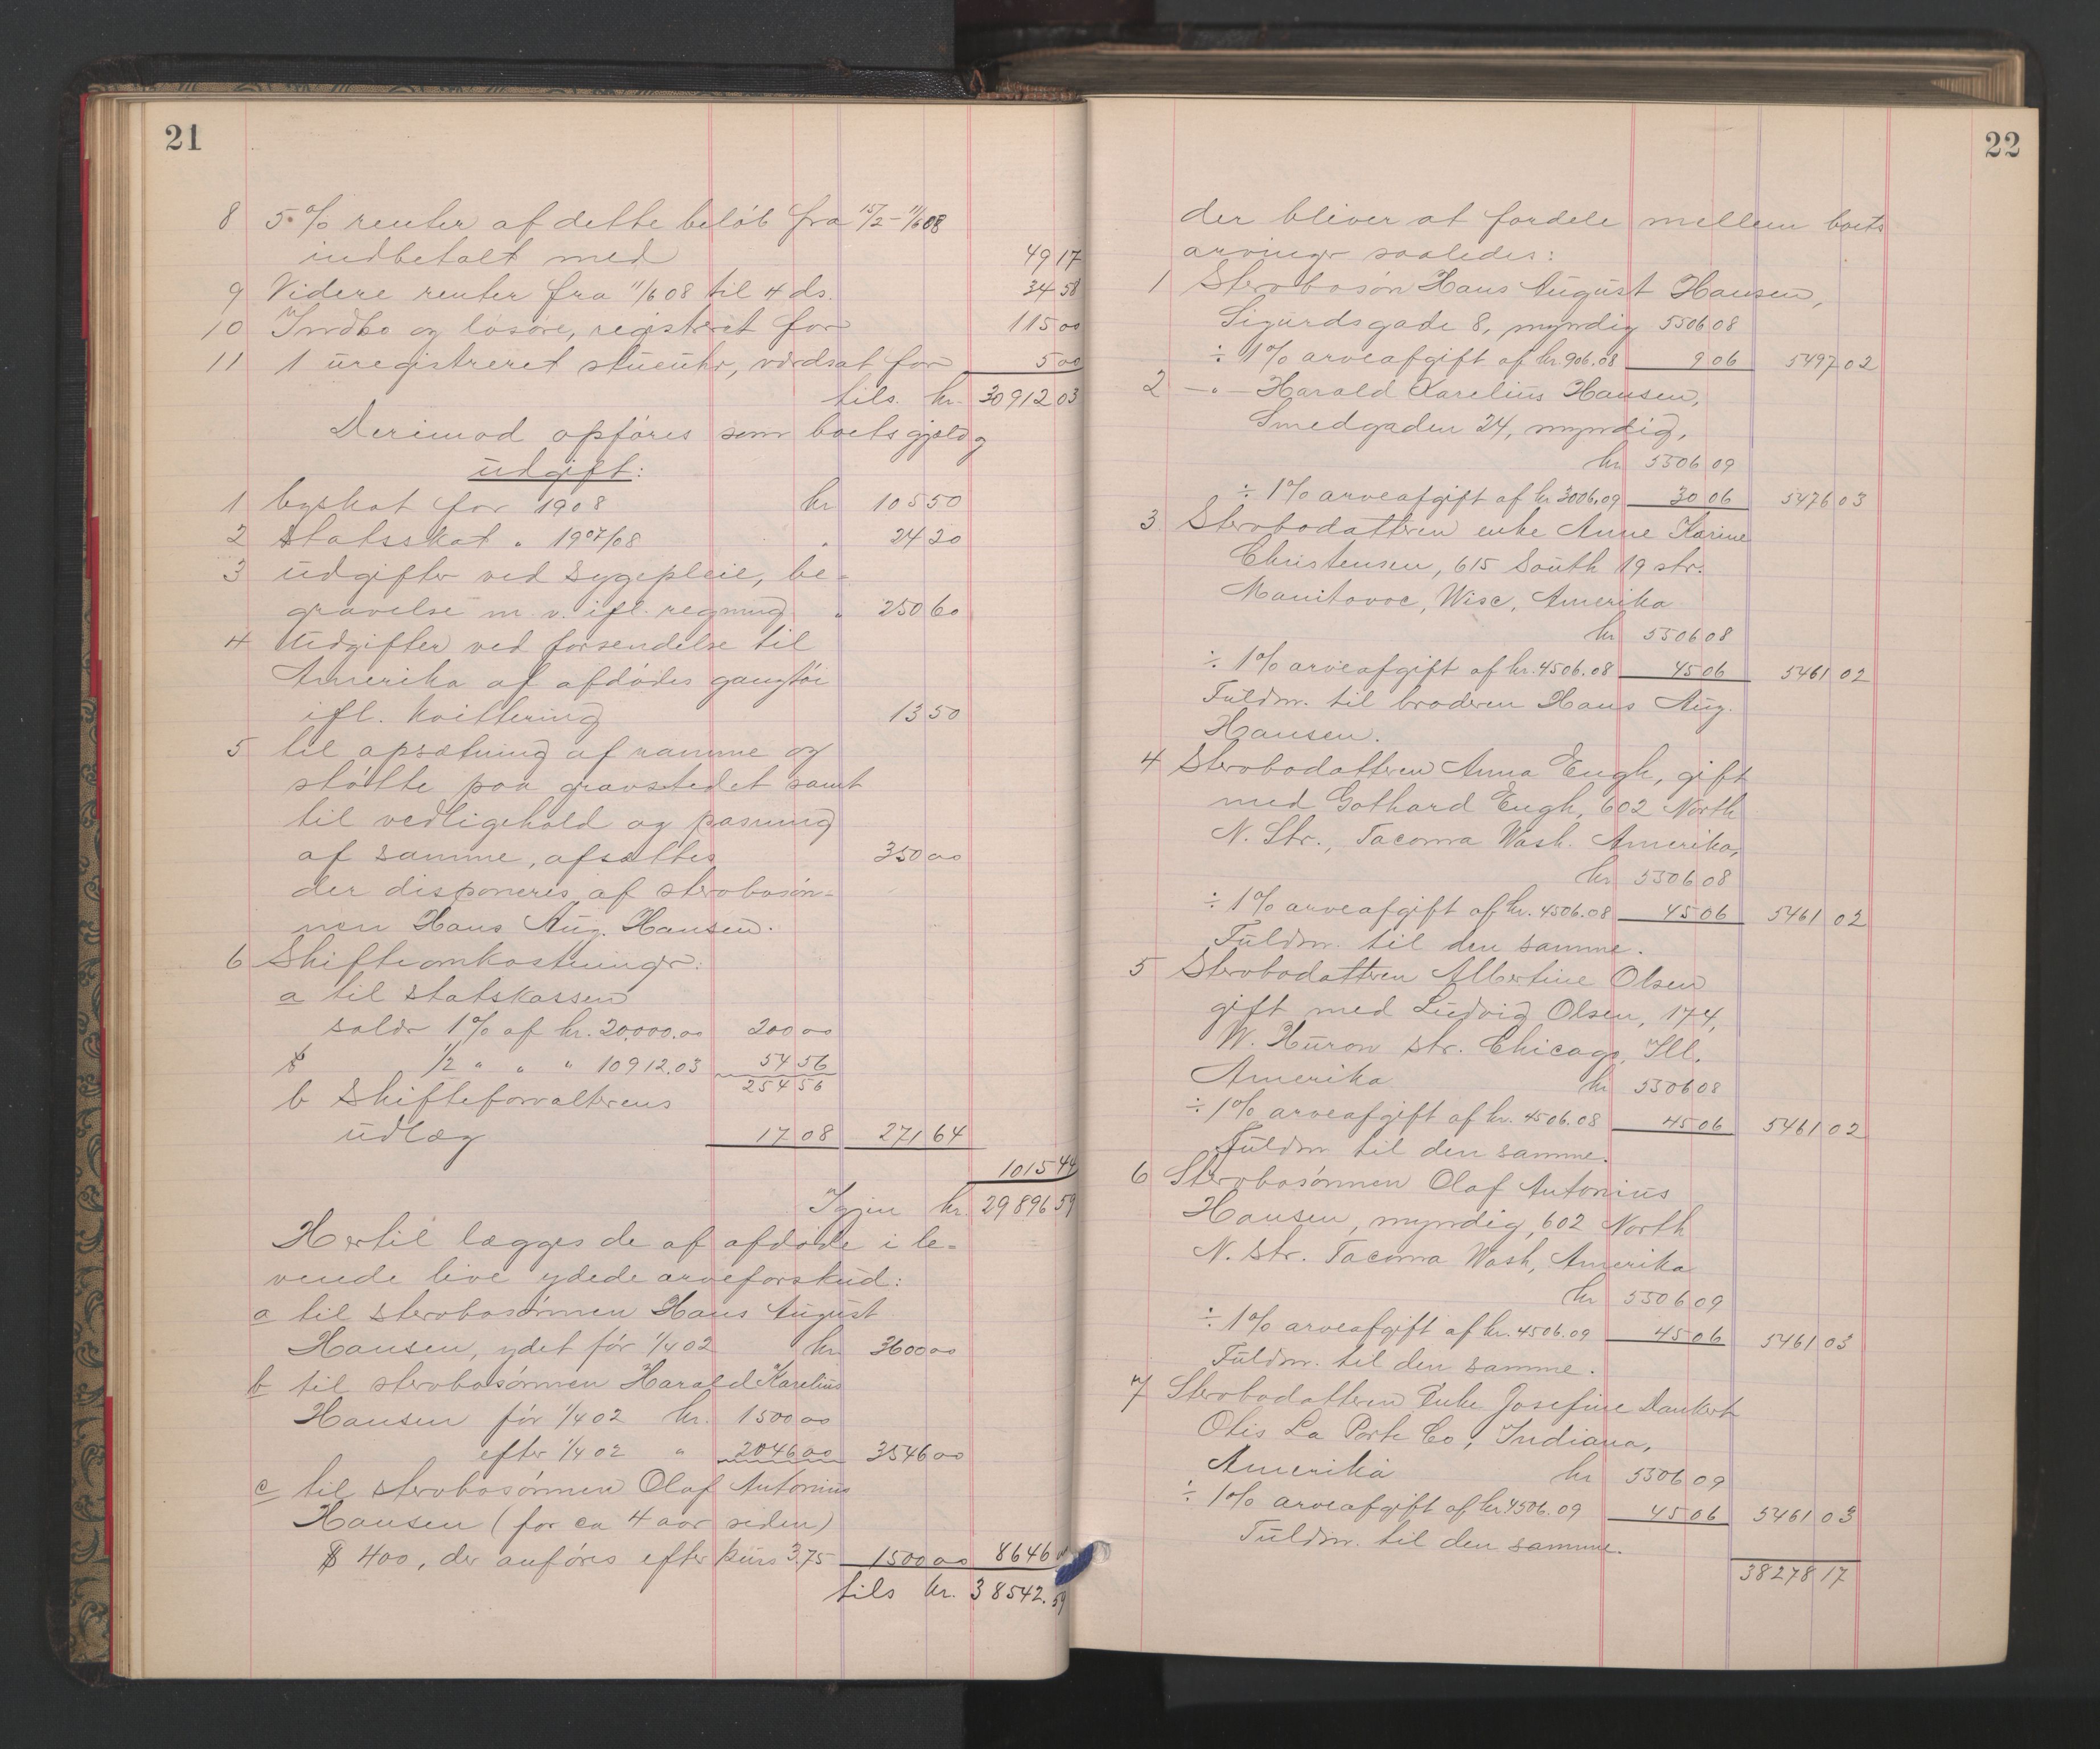 21
8 5% renter af dette beløb fra 15/2 - 11/6 08
indbetalt med 49 17
9 Videre renter fra 11/6 08 til 4 ds. 34 58
10 Indbo og løsøre, registreret for 115 00
11 1 uregistreret stueuhr, værdsat for 5 00
tils. kr. 30912 03
Derimod opføres som boets gjæld og
udgift:
1 byskat for 1908 kr 105 50
2 statsskat " 1907/08 " 24 20
3 udgifter ved sygepleie, be-
gravelse m. v. ifl. regning " 250 60
4 Udgifter ved forsendelse til
Amerika af afdødes gangtøi
ifl. kvittering 13 50
5 til opsætning af ramme og
støtte paa gravstedet samt
til vedligehold og pasning
af samme, afsættes 350 00
der disponeres af sterbosøn-
nen Hans Aug. Hansen.
6 Skifteomkostninger:
a til statskassen
saldr 1% af kr. 20,000.00 200 00
1/2 " " " 10912.03 54 56
254 56
b Skifteforvalterens
udlæg 17 08 271 64
1015 44
Igjen kr. 29896 59
Hertil lægges de af afdøde i le-
vende live ydede arveforskud:
a til sterbosønnen Hans August
Hansen, ydet før 1/4 02 kr 3600 00
b til sterbosønnen Harald Karelius
Hansen før 1/4 02 kr. 1500 00
efter 1/4 02 " 2046 00 3546 00
c til sterbosønnen Olaf Antonius
Hansen (for ca 4 aar siden)
$ 400, der anføres efter kurs 3,75 1500 00 8646 00
tils kr. 38542.59
22
der bliver at fordele mellem boets
arvinger saaledes:
1 Sterbosøn Hans August Hansen,
Sigurdsgade 8, myndig 5506 08
÷ 1% arveafgift af kr. 906.08 9 06 5497 02
2 — " — Harald Karelius Hansen,
Smedgaden 24, myndig,
kr 5506 09
÷ 1% arveafgift af kr 3006,09 30 06 5476 03
3 Sterbodatteren enke Anne Karine
Christensen, 615 South 19 str.
Manitovoc, Wisc, Amerika
kr 5506 08
÷ 1% arveafgift af kr. 4506.08 45 06 5461 02
Fuldm. til broderen Hans Aug.
Hansen.
4 Sterbodatteren Anna Engh, gift
med Gothard Engh, 602 North
N. Str., Tacoma Wash. Amerika,
kr 5506 08
÷ 1% arveafgift af kr. 4506.08 45 06 5461 02
Fuldm. til den samme.
5 Sterbodatteren Albertine Olsen
gift med Ludvig Olsen, 174,
W. Huron str. Chicago, Ill.
Amerika kr 5506 08
÷ 1% arveafgift af kr. 4506.08 45 06 5461 02
Fuldm til den samme.
6 Sterbosønnen Olaf Antonius
Hansen, myndig, 602 North
N. Str. Tacoma Wash, Amerika
kr 5506 09
÷ 1% arveafgift af kr. 4506.09 45 06 5461 03
Fuldm. til den samme.
7 Sterbodatteren Enke Josefine Dankert
Otis La Porte Co, Indiana,
Amerika kr 5506 09
÷ 1% arveafgift af kr 4506.09 45 06 5461 03
Fuldm. til den samme.
38278 17